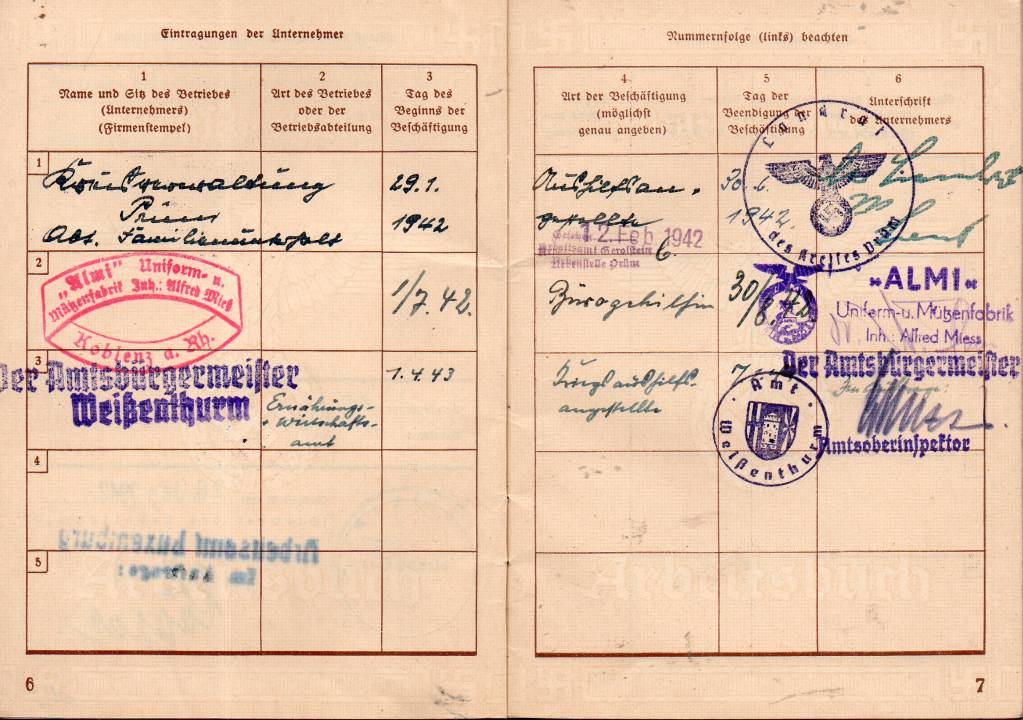 Eintragungen der Unternehmer
1
Name und Sitz des Betriebes
(Unternehmers)
(Firmenstempel)
2
Art des Betriebes
oder der
Betriebsabteilung
3
Tag des
Beginns der
Beschäftigung
1
Kreisverwaltung
Prüm
Abt. Familienunterhalt
29.1.
1942
2
"Almi" Uniform- u.
Mützenfabrik Inh.: Alfred Mieß
Koblenz a. Rh.
1/7.42.
3
Der Amtsbürgermeister
Weißenthurm
Ernährungs-
+ Wirtschafts-
amt
1.4.43
4
Arbeitsamt Luxemburg
Im Auftrage:
5
Arbeitsbuch
6
Nummernfolge (links) beachten
4
Art der Beschäftigung
(möglichst
genau angeben)
5
Tag der
Beendigung der
Beschäftigung
6
Unterschrift
des Unternehmers
Aushilfsan-
gestellte
30.6.
1942.
Landrat
des Kreises Prüm
12. Feb 1942
Arbeitsamt Gerolstein
Nebenstelle Prüm
Bürogehilfin
30/8.42
»ALMI«
Uniform-u. Mützenfabrik
Inh. Alfred Miess
Kriegsaushilfs-
angestellte
7
Amt
Weißenthurm
Der Amtsbürgermeister
Amtsoberinspektor
Arbeitsbuch
7